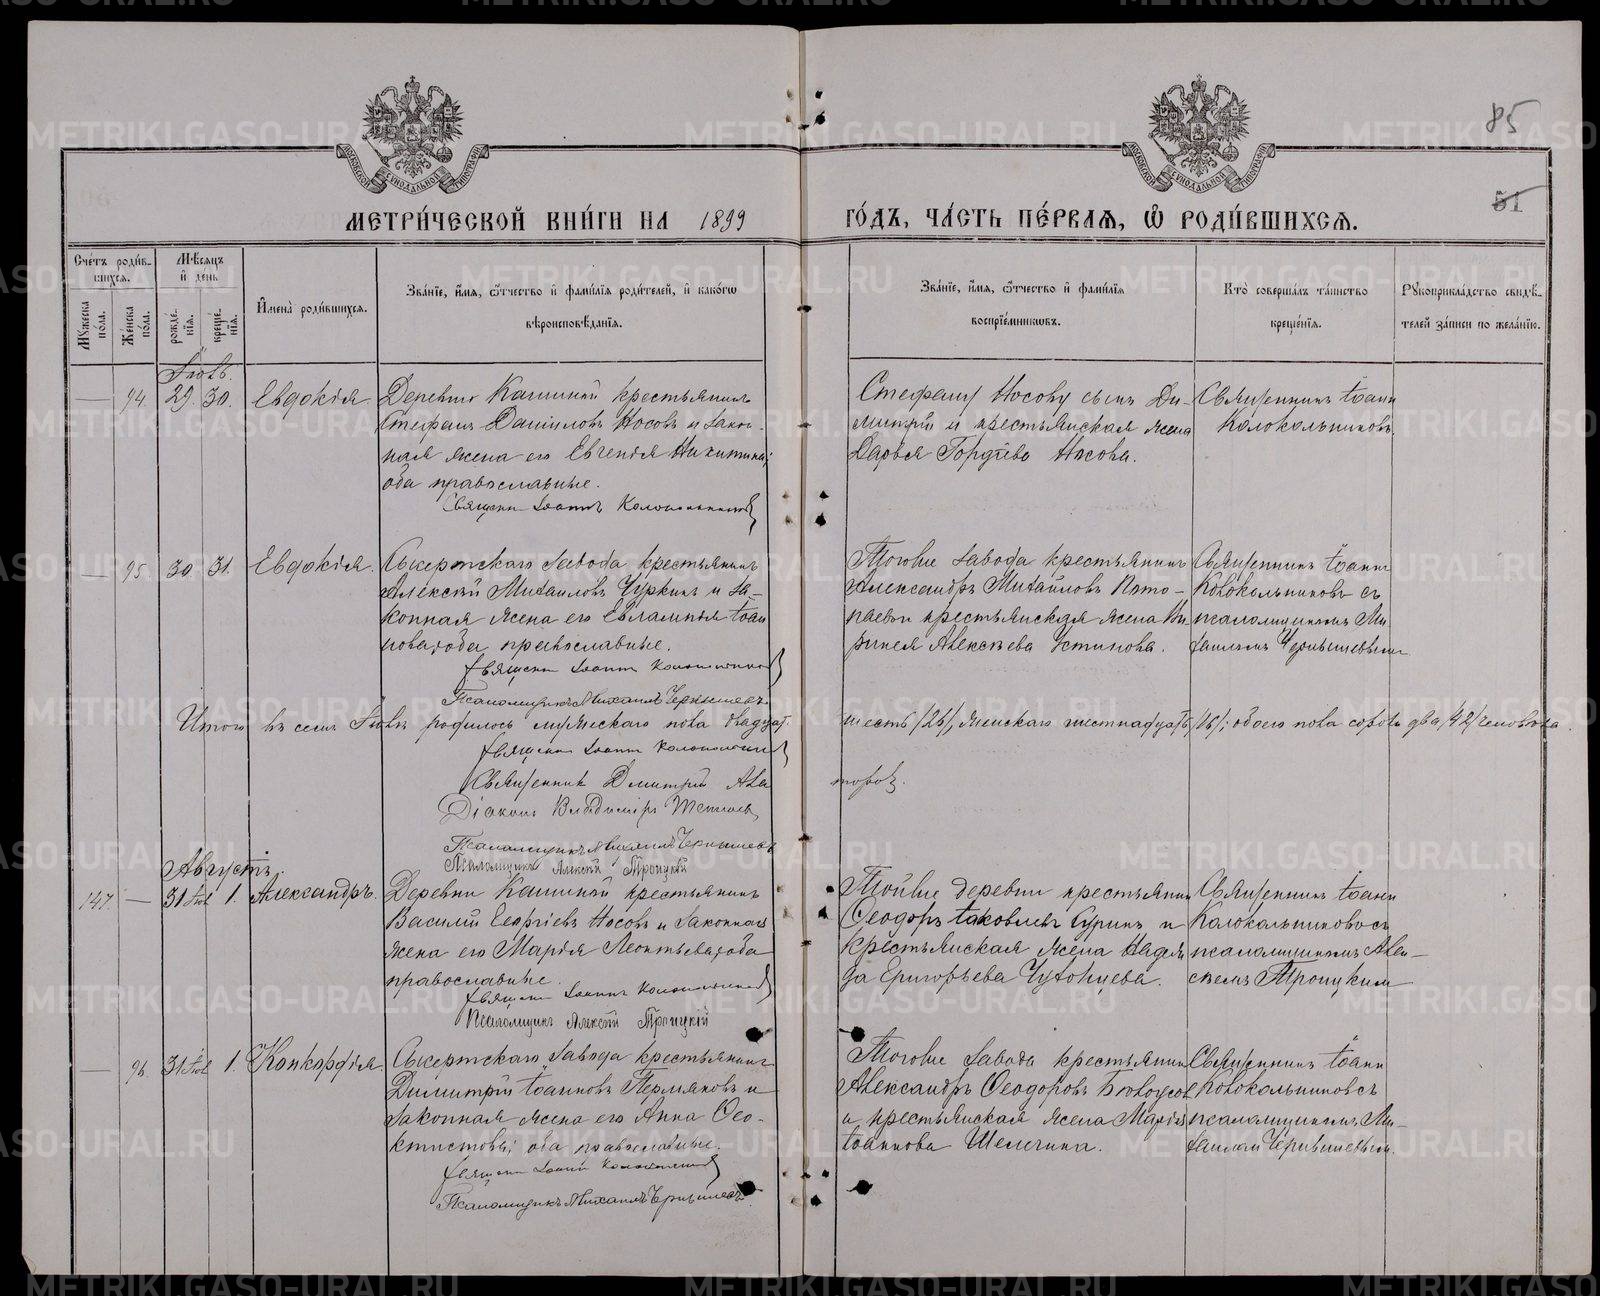 85
51
МОСКОВСКОЙ СѴНОДАЛЬНОЙ ТИПОГРАФІИ
МОСКОВСКОЙ СѴНОДАЛЬНОЙ ТИПОГРАФІИ
МЕТРИ́ЧЕСКОЙ КНИ́ГИ НА 1899 ГО́ДЪ, ЧА́СТЬ ПЕ́РВАѦ, Ѽ РОДИ́ВШИХСѦ.
Сче́тъ роди́вшихсѧ.
Мꙋжеска по́ла.
Же́нска по́ла.
Мѣ́сѧцъ и҆ де́нь
рожде́нїѧ.
креще́нїѧ.
И҆мена̀ роди́вшихсѧ.
Зва́нїе, и҆́мѧ, ѻ҆́тчество и҆ фамѝлїѧ роди́телей, и҆ како́гѡ
вѣроисповѣ́данїѧ.
Зва́нїе, и҆́мѧ, ѻ҆́тчество и҆ фамѝлїѧ
воспрїе́мниковъ.
Кто̀ соверша́лъ та́инство
креще́нїѧ.
Рꙋкоприкла́дство свидѣ́-
телей за́писи по жела́нїю.
Іюль.
— 94 29. 30. Евдокія.
Деревни Кашиной крестьянинъ
Стефанъ Даніиловъ Носовъ и закон-
ная жена его Евгенія Никитина;
оба православные.
Священ. Іоаннъ Колокольниковъ
Стефану Носову сынъ Ди-
митрій и крестьянская жена
Дарья Гордіева Носова.
Священникъ Іоаннъ
Колокольниковъ.
— 95 30. 31. Евдокія.
Сысертскаго завода крестьянинъ
Алексѣй Михаиловъ Чуркинъ и за-
конная жена его Евлампія Іоан
нова, оба православные.
Священ. Іоаннъ Колокольников
Псаломщикъ Михаилъ Чернышевъ.
Того же завода крестьянинъ
Александръ Михайловъ
крестьянская жена Ки
ринея Алексѣева Устинова.
Священникъ Іоаннъ
Колокольниковъ съ
псаломщикомъ Ми
хаиломъ Чернышевымъ
Итого въ семъ Іюлѣ родилось мужескаго пола двадцат. шесть /26/, женскаго шестнадцать /16/; обоего пола сорокъ два /42/ человѣка.
Священ. Іоаннъ Колокольников
Священникъ Димитрій
Діаконъ Владиміръ
Псаломщикъ Михаилъ Чернышевъ
Псаломщикъ Алексѣй Троицкій
Августъ.
147. — 31 Іюл 1. Александръ.
Деревни Кашиной крестьянинъ
Василій Георгіевъ Носовъ и законная
жена его Марія Леонтьева, оба
православные.
Священ. Іоаннъ Колокольников
Псаломщикъ Алексѣй Троицкій
Той же деревни крестьянин
Ѳеодоръ Іаковлевъ Суринъ и
крестьянская жена Надеж
да Григорьева Чухонцева.
Священникъ Іоаннъ
Колокольниковъ съ
псаломщикомъ Алек-
сѣемъ Троицким
— 96. 31 Іюл 1. Конкордія.
Сысертскаго завода крестьянинъ
Димитрій Іоанновъ Пермяковъ и
законная жена его Анна Ѳео-
ктистова; оба православные.
Священ. Іоаннъ Колокольников
Псаломщикъ Михаилъ Чернышевъ
Того же завода крестьянин
Александръ Ѳеодоровъ Бѣлоусов
и крестьянская жена Марія
Іоаннова Шелегина.
Священникъ Іоанн
Колокольниковъ съ
псаломщикомъ Ми-
хаилом Чернышевым.
METRIKI.GASO-URAL.RU